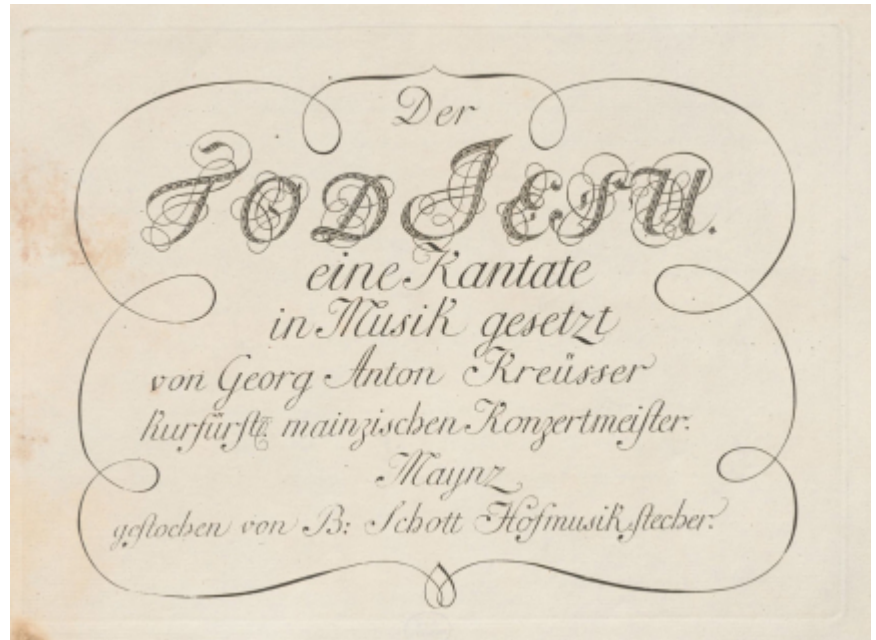 Der
TOD JESU.
eine Kantate
in Musik gesetzt
von Georg Anton Kreüsser
kurfürstl: mainzischen Konzertmeister.
Maynz
gestochen von B: Schott Hofmusikstecher.